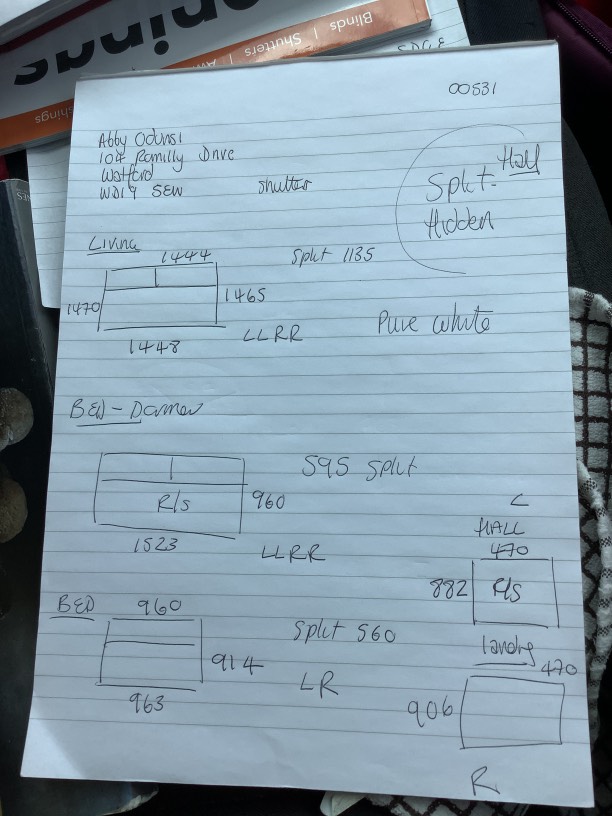 Blinds | Shutters | Aw
00531
Abby Odunsi
104 Romilly Drive
Watford
WD19 5EW
Shutter
Split- Half
Hidden
Living
1444
Split 1135
1470
1465
1448
LLRR
Pure White
BED - Darren
595 Split
R/s
960
1523
LLRR
L
HALL
470
882
R/s
BED
960
Split 560
914
LR
963
landng
470
906
R